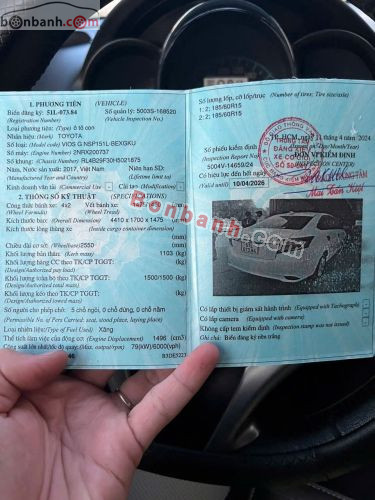 bonbanh.com
1. PHƯƠNG TIỆN (VEHICLE)
Biển đăng ký: 51L-073.84 Số quản lý: 5003S-168520
(Registration Number) (Vehicle Inspection No.)
Loại phương tiện: (Type) ô tô con
Nhãn hiệu: (Mark) TOYOTA
Số loại: (Model code) VIOS G NSP151L-EEXGKU
Số máy: (Engine Number) 2NRX200737
Số khung: (Chassis Number) RL4B29F30H5021875
Năm, Nước sản xuất: 2017, Việt Nam Niên hạn SD:
(Manufactured Year and Country) (Lifetime limit to)
Kinh doanh vận tải (Commercial Use) - Cải tạo (Modification) -
2. THÔNG SỐ KỸ THUẬT (SPECIFICATIONS)
Công thức bánh xe: 4x2 Vết bánh xe:
(Wheel Formula) (Wheel Tread)
Kích thước bao: (Overall Dimension) 4410 x 1700 x 1475
Kích thước lòng thùng xe
(Inside cargo container dimension)
Chiều dài cơ sở: (Wheelbase) 2550
Khối lượng bản thân: (Kerb mass) 1103
Khối lượng hàng CC theo TK/CP TGGT:
(Design/Authorized pay load)
Khối lượng toàn bộ theo TK/CP TGGT: 1500/1500
(Design/Authorized total mass)
Khối lượng kéo theo TK/CP TGGT:
(Design/Authorized towed mass)
Số người cho phép chở: 5 chỗ ngồi, 0 chỗ đứng, 0 chỗ nằm
(Permissible No. of Pers Carried: seat, stood place, laying place)
Loại nhiên liệu: (Type of Fuel Used) Xăng
Thể tích làm việc của động cơ: (Engine Displacement) 1496 (cm3)
Công suất lớn nhất/tốc độ quay: (Max. output/rpm) 79(kW)/6000(vph)
Số lượng lốp, cỡ lốp/trục (Number of tires; Tire size/axle)
1: 2; 185/60R15
2: 2; 185/60R15
TP. HCM, ngày 11 tháng 4 năm 2024
(Day/Month/Year)
Số phiếu kiểm định
(Inspection Report No)
5004V-14559/24
ĐƠN VỊ KIỂM ĐỊNH
Có hiệu lực đến hết ngày
(Valid until) 10/04/2026
TRUNG TÂM
ĐĂNG KIỂM
XE CƠ GIỚI
Bonbanh.com
Có lắp thiết bị giám sát hành trình (Equipped with Tachograph)
Có lắp camera (Equipped with camera)
Không cấp tem kiểm định (Inspection stamp was not issued)
Ghi chú: Biển đăng ký nền trắng
bonbanh.com